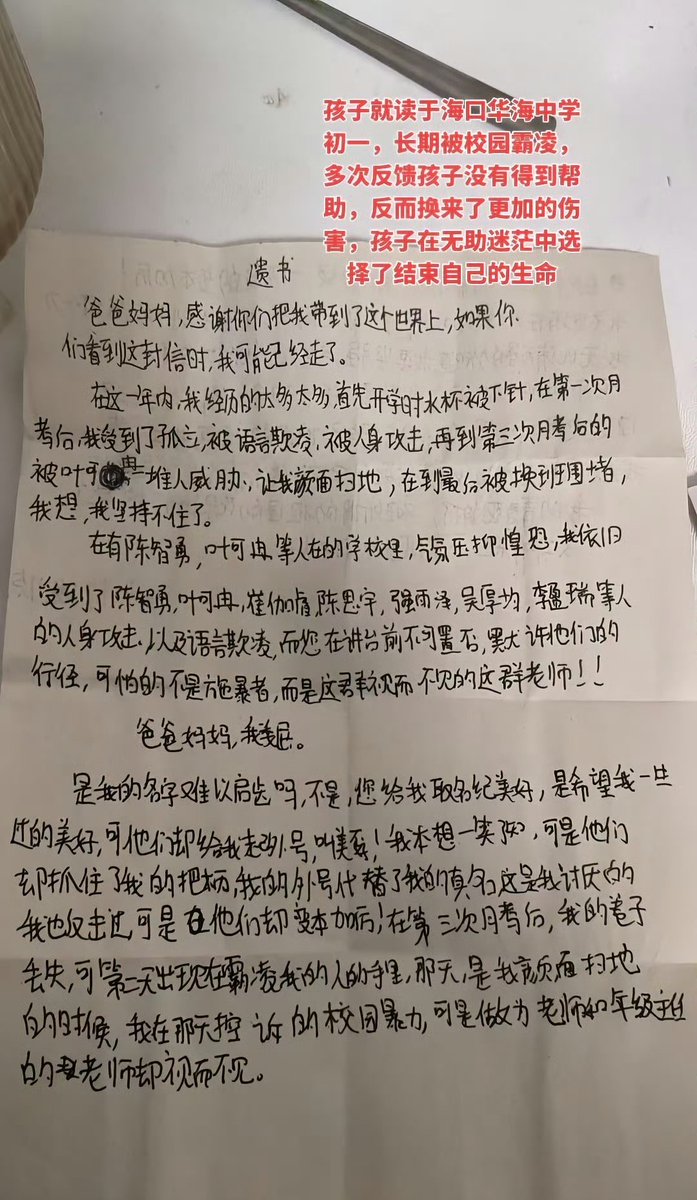 孩子就读于海口华海中学
初一，长期被校园霸凌，
多次反馈孩子没有得到帮
助，反而换来了更加的伤
害，孩子在无助迷茫中选
择了结束自己的生命
遗书
爸爸妈妈，感谢你们把我带到了这个世界上，如果你
们看到这封信时，我可能已经走了。
在这一年内，我经历的太多太多，首先开学时水杯被下针，在第一次月
考后，我受到了孤立，被语言欺凌、被人身攻击，再到第三次月考后的
被叶可冉一堆人威胁、让我颜面扫地，在到最后被换班围堵，
我想，我坚持不住了。
在有陈智勇，叶可冉等人在的学校里，气氛压抑惶恐，我依旧
受到了陈智勇，叶可冉，崔伽睿，陈思宇，强雨泽，吴厚均，李盈瑞等人
的人身攻击、以及语言欺凌，而您在讲台前不可置否，默许他们的
行径，可怕的不是施暴者，而是这群视而不见的这群老师！！
爸爸妈妈，我委屈。
是我的名字难以启齿吗，不是，您给我取名纪美好，是希望我一生
过的美好，可他们却给我起外号，叫美！我本想一笑，可是他们
却抓住了我的把柄，我的外号代替了我的真名，这是我讨厌的
我也反击过，可是在他们却变本加厉！在第三次月考后，我的卷子
丢失，可第二天出现在霸凌我的人的手里，那天，是我颜面扫地
的时候，我在那天控诉的校园暴力，可是做为老师和年级主任
的老师却视而不见。